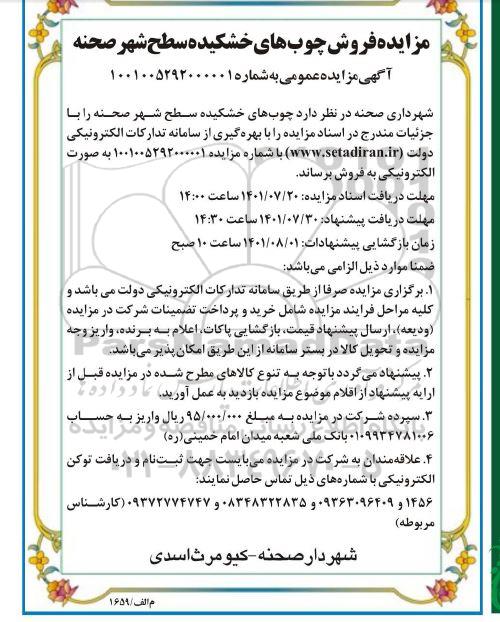 مزایده فروش چوب‌های خشکیده سطح شهر صحنه
آگهی مزایده عمومی به شماره ۱۰۰۱۰۰۵۲۹۲۰۰۰۰۰۱
شهرداری صحنه در نظر دارد چوب‌های خشکیده سطح شهر صحنه را با
جزئیات مندرج در اسناد مزایده را با بهره‌گیری از سامانه تدارکات الکترونیکی
دولت (www.setadiran.ir) با شماره مزایده ۱۰۰۱۰۰۵۲۹۲۰۰۰۰۰۱ به صورت
الکترونیکی به فروش برساند.
مهلت دریافت اسناد مزایده: ۱۴۰۱/۰۷/۲۰ ساعت ۱۴:۰۰
مهلت دریافت پیشنهاد: ۱۴۰۱/۰۷/۳۰ ساعت ۱۴:۳۰
زمان بازگشایی پیشنهادات: ۱۴۰۱/۰۸/۰۱ ساعت ۱۰ صبح
ضمنا موارد ذیل الزامی می‌باشد:
۱. برگزاری مزایده صرفا از طریق سامانه تدارکات الکترونیکی دولت می باشد و
کلیه مراحل فرایند مزایده شامل خرید و پرداخت تضمینات شرکت در مزایده
(ودیعه)، ارسال پیشنهاد قیمت، بازگشایی پاکات، اعلام به برنده، واریز وجه
مزایده و تحویل کالا در بستر سامانه از این طریق امکان پذیر می‌باشد.
۲. پیشنهاد می‌گردد با توجه به تنوع کالاهای مطرح شده در مزایده قبل از
ارایه پیشنهاد از اقلام موضوع مزایده بازدید به عمل آورید.
۳. سپرده شرکت در مزایده به مبلغ ۹۵/۰۰۰/۰۰۰ ریال واریز به حساب
۰۱۰۹۹۳۴۷۸۱۰۰۶ بانک ملی شعبه میدان امام خمینی(ره)
۴. علاقه‌مندان به شرکت در مزایده می‌بایست جهت ثبت‌نام و دریافت توکن
الکترونیکی با شماره‌های ذیل تماس حاصل نمایند:
۱۴۵۶ و ۰۹۳۶۳۰۹۶۴۰۹ و ۰۸۳۴۸۳۲۲۸۳۵ و ۰۹۳۷۲۷۷۴۷۴۷ (کارشناس
مربوطه)
شهردار صحنه - کیومرث اسدی
م الف/۱۶۵۹